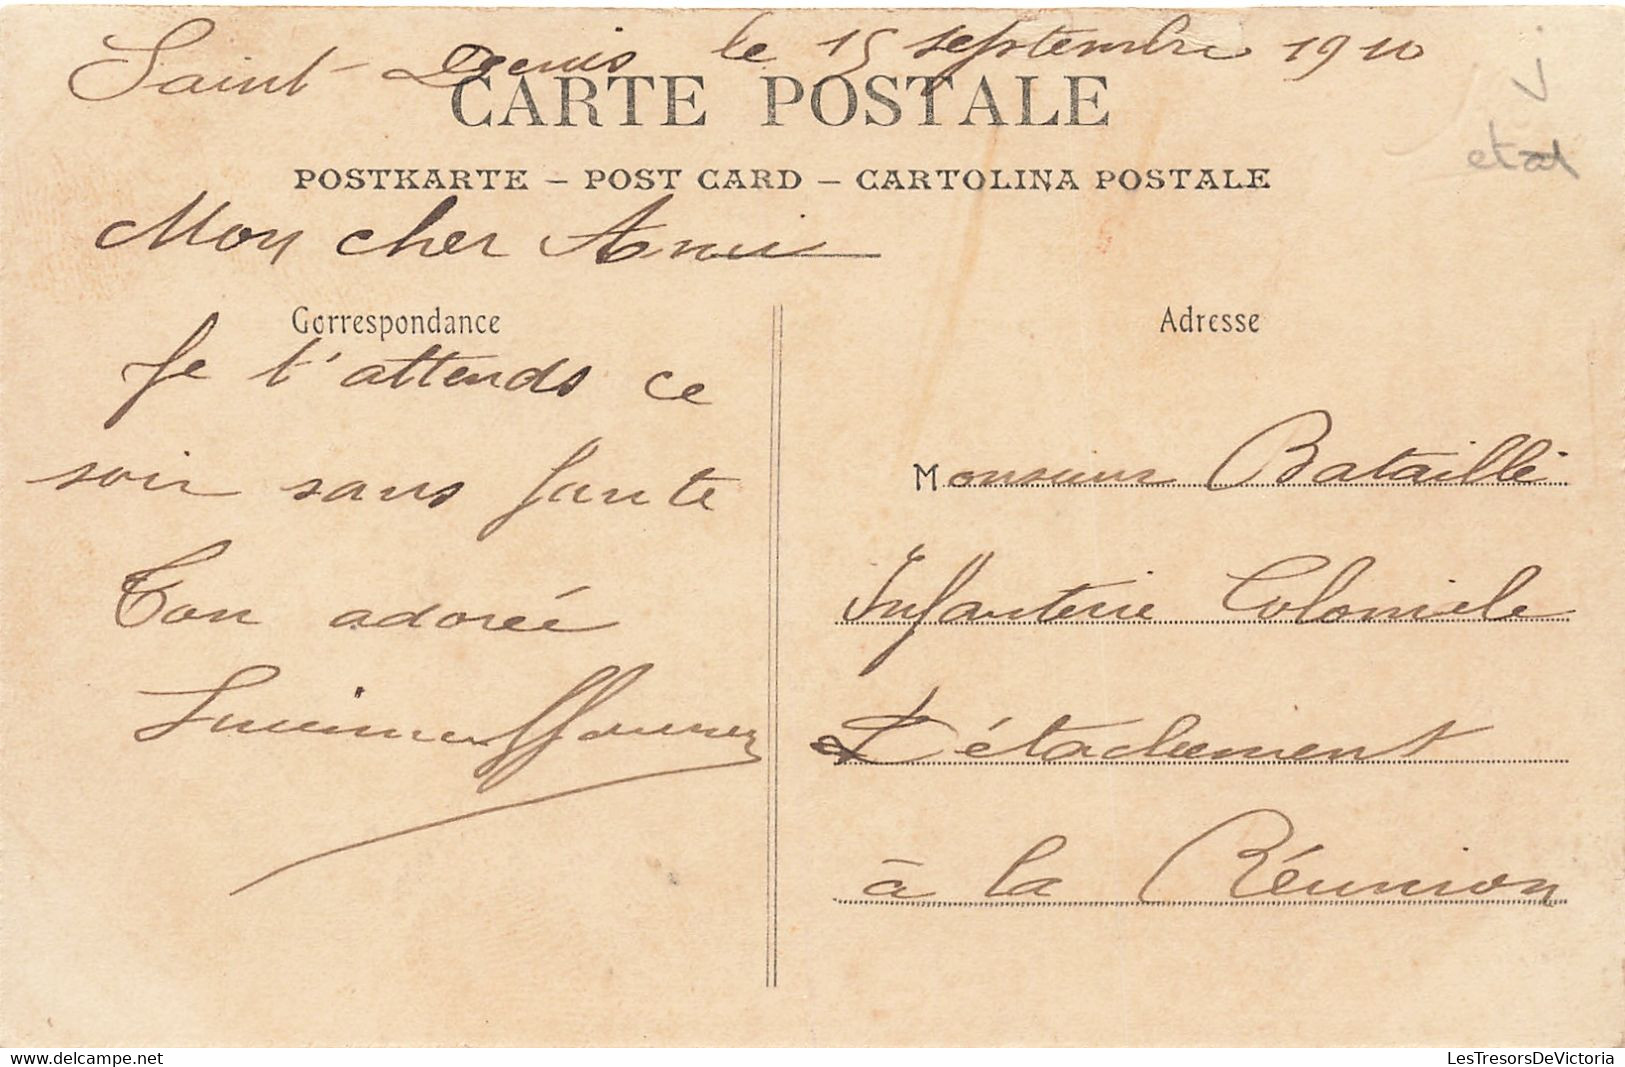 Saint-Denis le 15 septembre 1910
CARTE POSTALE
etat
POSTKARTE – POST CARD – CARTOLINA POSTALE
Mon cher Ami
Correspondance
Je t'attends ce
soir sans faute
Ton adorée
Adresse
Monsieur Bataille
Infanterie Coloniele
Détachement
à la Réunion
LesTresorsDeVictoria